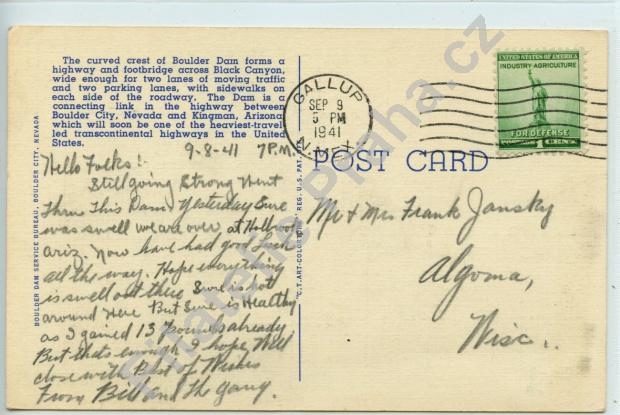 The curved crest of Boulder Dam forms a
highway and footbridge across Black Canyon,
wide enough for two lanes of moving traffic
and two parking lanes, with sidewalks on
each side of the roadway. The Dam is a
connecting link in the highway between
Boulder City, Nevada and Kingman, Arizona
which will soon be one of the heaviest-travel-
led transcontinental highways in the United
States.
9-8-41 7 P.M.
Hello Folks!
Still going Strong Went
Thru This Dam Yesterday Sure
was swell we are over at Holbrook
Ariz. Now have had good Luck
all the way. Hope everything
is swell out there Sure is hot
around Here But Sure is Healthy
as I gained 13 Pounds already
But thats enough I hope Will
close with Best of Wishes
From Bill and The gang.
BOULDER DAM SERVICE BUREAU, BOULDER CITY, NEVADA
"C.T. ART-COLORTONE" REG. U.S. PAT. OFF.
GALLUP
SEP 9
5 PM
1941
N. MEX.
UNITED STATES OF AMERICA
INDUSTRY-AGRICULTURE
FOR DEFENSE
1 CENT
POST CARD
Mr & Mrs Frank Jansky
Algoma,
Wisc.
Filatelie Praha.cz